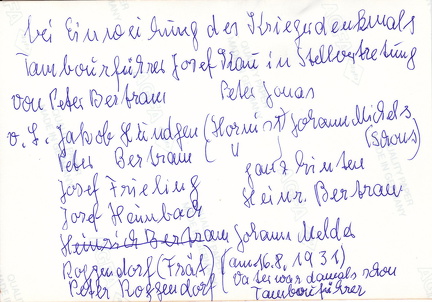 bei Einweihung des Kriegerdenkmals
Tambourführer Josef Klau in Stellvertretung
von Peter Bertram Peter Jonas
v. L. Jakob Hündgen (Hornist) Johann Michels
Peter Bertram ( " ) (Schous)
Josef Frieling ganz hinten
Josef Heimbach Heinr. Bertram
Heinrich Bertram Johann Melder
Roggendorf (Frät) (am 16.8.1931)
Peter Roggendorf (Vater war damals schon
Tambourführer